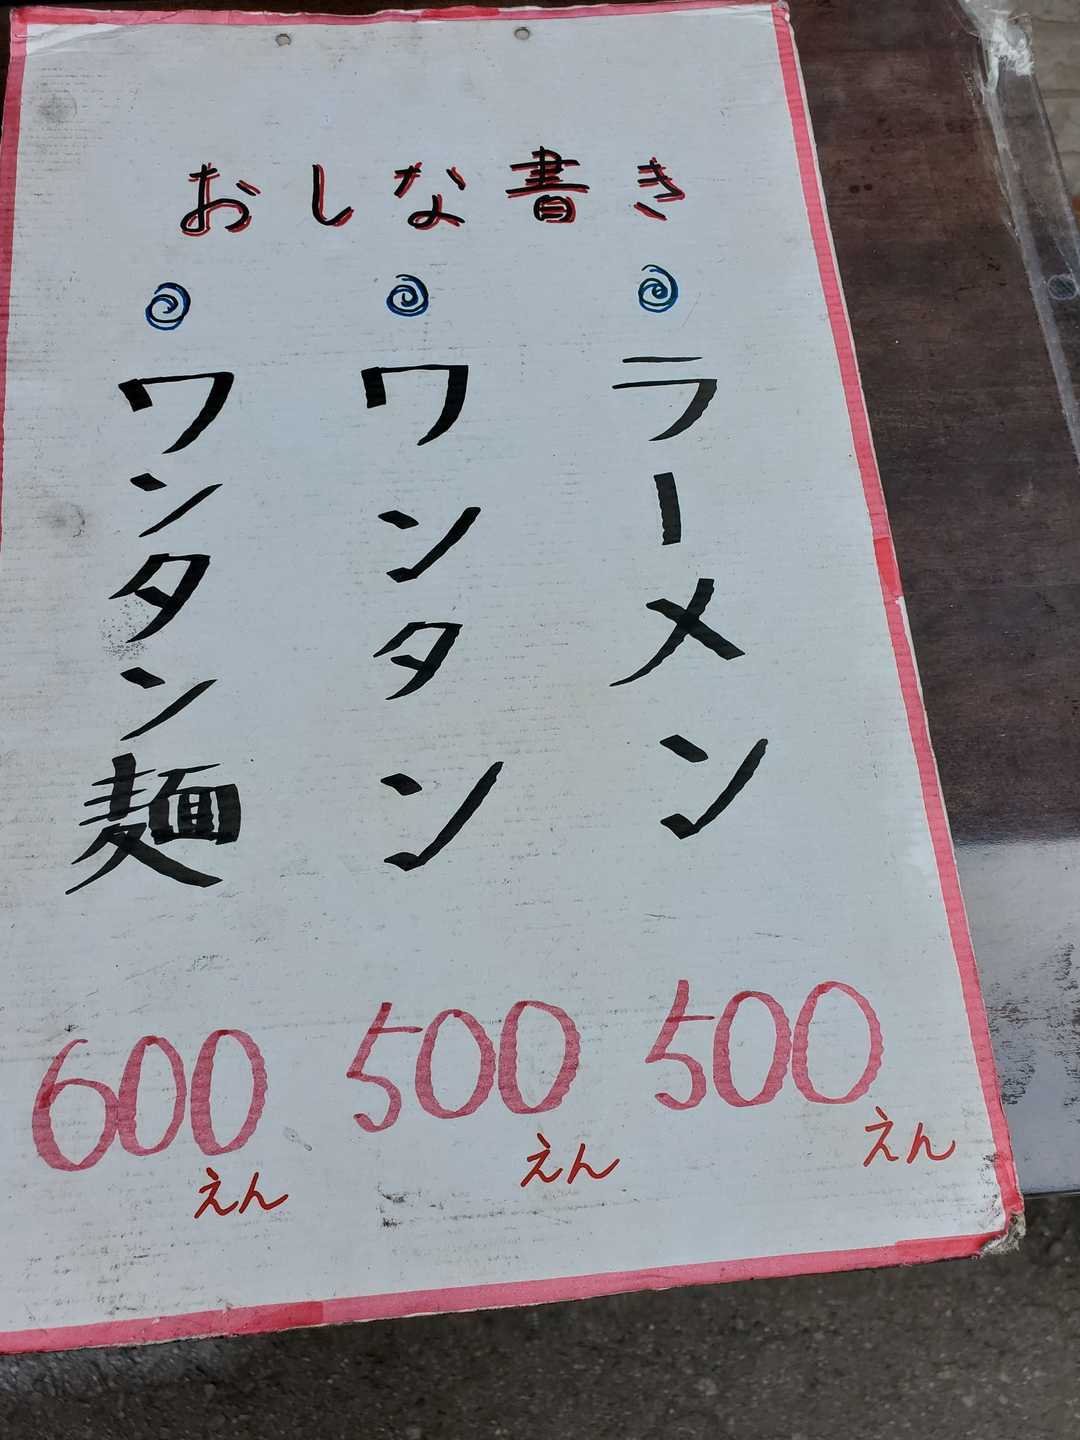 おしな書き
ラーメン
500えん
ワンタン
500えん
ワンタン麺
600えん